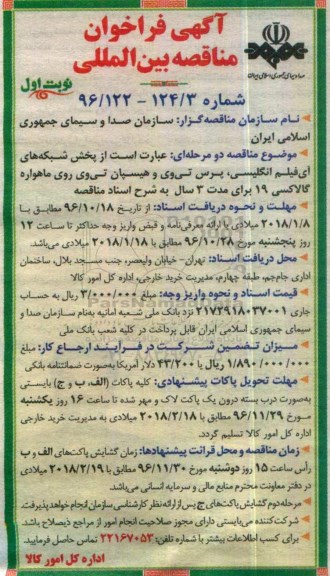 آگهی فراخوان
مناقصه بین‌المللی
نوبت اول
شماره ۱۲۴/۳ - ۹۶/۱۲۲
نام سازمان مناقصه‌گزار: سازمان صدا و سیمای جمهوری
اسلامی ایران
موضوع مناقصه دو مرحله‌ای: عبارت است از پخش شبکه‌های
آی‌فیلم انگلیسی، پرس تی‌وی و هیسپان تی‌وی روی ماهواره
گالاکسی ۱۹ برای مدت ۳ سال به شرح اسناد مناقصه
مهلت و نحوه دریافت اسناد: از تاریخ ۹۶/۱۰/۱۸ مطابق با
۲۰۱۸/۱/۸ میلادی با ارائه معرفی‌نامه و فیش واریز وجه حداکثر تا ساعت ۱۲
روز پنجشنبه مورخ ۹۶/۱۰/۲۸ مطابق با ۲۰۱۸/۱/۱۸ میلادی می‌باشد.
محل دریافت اسناد: تهران- خیابان ولیعصر، جنب مسجد بلال، ساختمان
اداری جام‌جم، طبقه چهارم، مدیریت خرید خارجی، اداره کل امور کالا
قیمت اسناد و نحوه واریز وجه: مبلغ ۳/۰۰۰/۰۰۰ ریال به حساب
جاری ۲۱۷۲۹۱۸۰۳۷۰۰۱ نزد بانک ملی شعبه امانیه به‌نام سازمان صدا و
سیمای جمهوری اسلامی ایران قابل پرداخت در کلیه شعب بانک ملی
میزان تضمین شرکت در فرآیند ارجاع کار: مبلغ
۱/۸۹۰/۰۰۰/۰۰۰ ریال یا ۴۳/۲۰۰ دلار آمریکا به‌صورت ضمانتنامه بانکی
مهلت تحویل پاکات پیشنهادی: کلیه پاکات (الف، ب و ج) بایستی
به‌صورت درب بسته درون یک پاکت لاک و مهر شده تا ساعت ۱۶ روز یکشنبه
مورخ ۹۶/۱۱/۲۹ مطابق با ۲۰۱۸/۲/۱۸ میلادی به مدیریت خرید خارجی
اداره کل امور کالا تسلیم گردد.
زمان مناقصه و محل قرائت پیشنهادها: زمان گشایش پاکت‌های الف و ب
رأس ساعت ۱۵ روز دوشنبه مورخ ۹۶/۱۱/۳۰ مطابق با ۲۰۱۸/۲/۱۹ میلادی
در دفتر معاونت محترم منابع مالی و سرمایه انسانی می‌باشد.
مرحله دوم گشایش پاکت‌های ج پس از ارائه نظر کارشناسی سازمان انجام خواهد پذیرفت.
شرکت‌کننده می‌بایستی دارای مجوز صلاحیت انجام امور از مراجع ذیصلاح باشد.
برای کسب اطلاعات بیشتر با شماره تلفن: ۲۲۱۶۷۰۵۳ تماس حاصل فرمایید.
اداره کل امور کالا